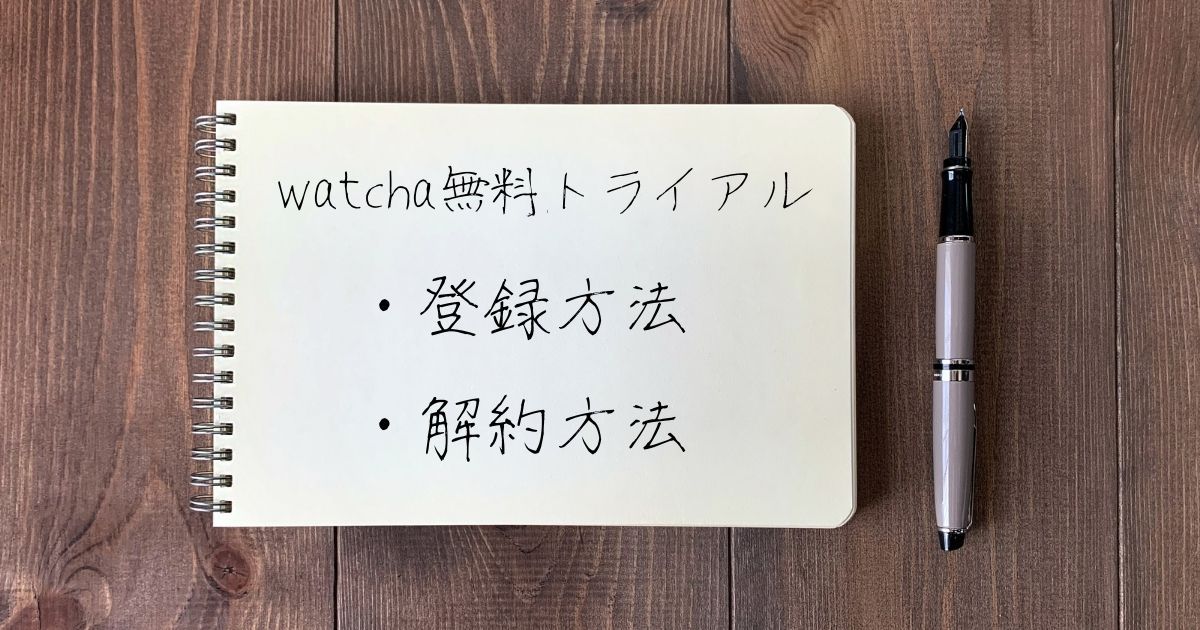 watcha無料トライアル
・登録方法
・解約方法